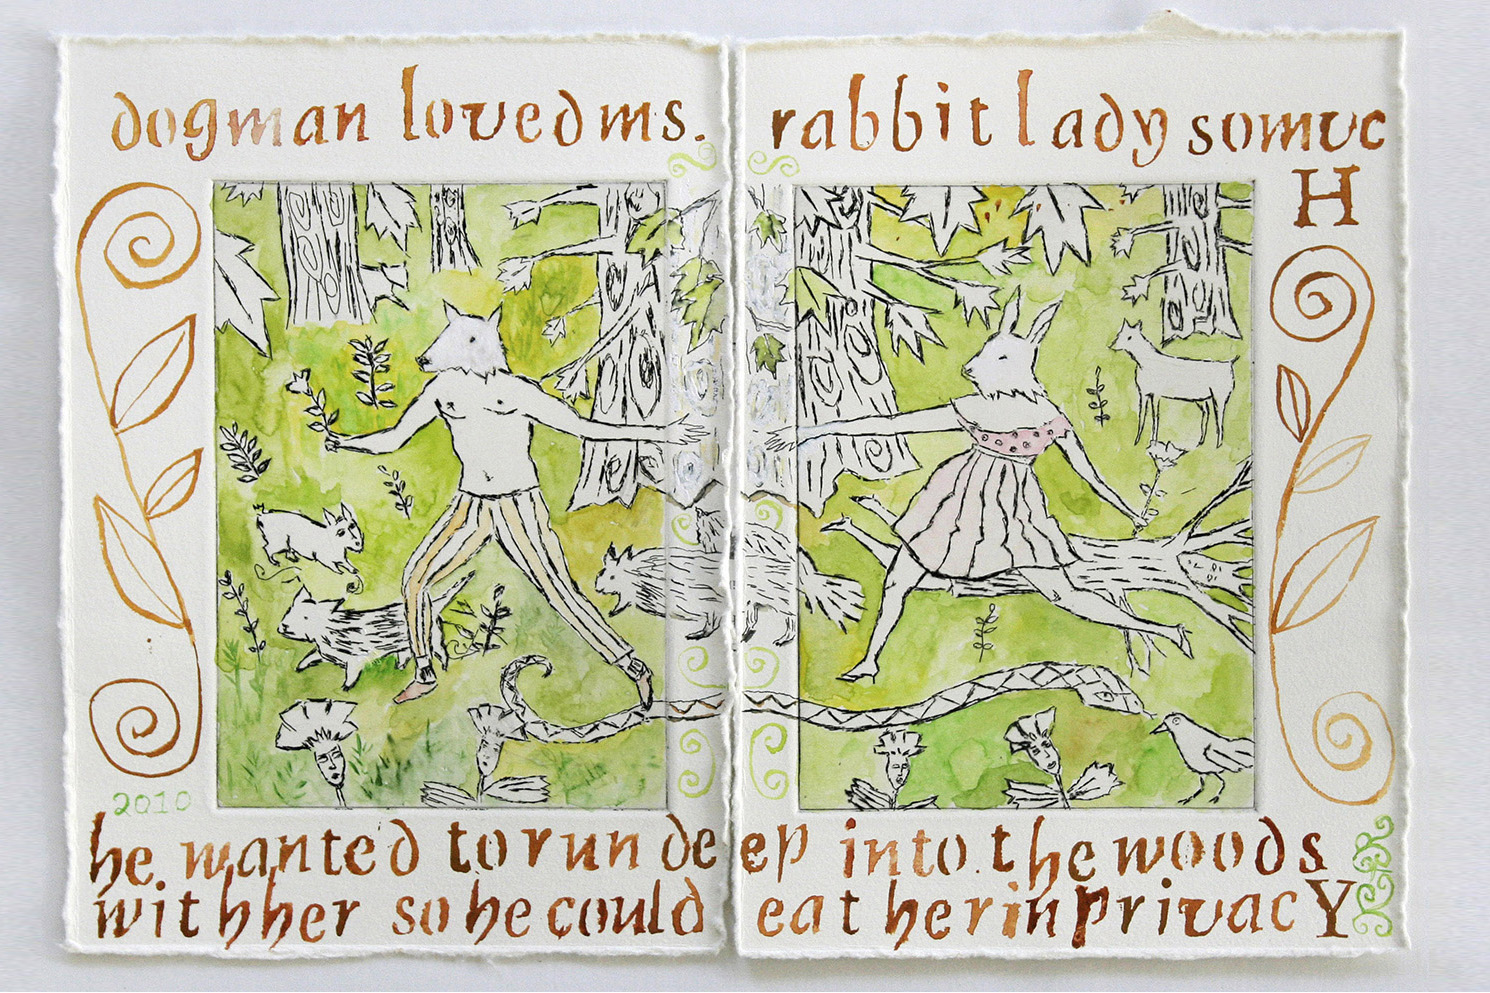 dogman loved ms. rabbit lady so muc
H
2010
he wanted to run deep into the woods
with her so he could eat her in privacY